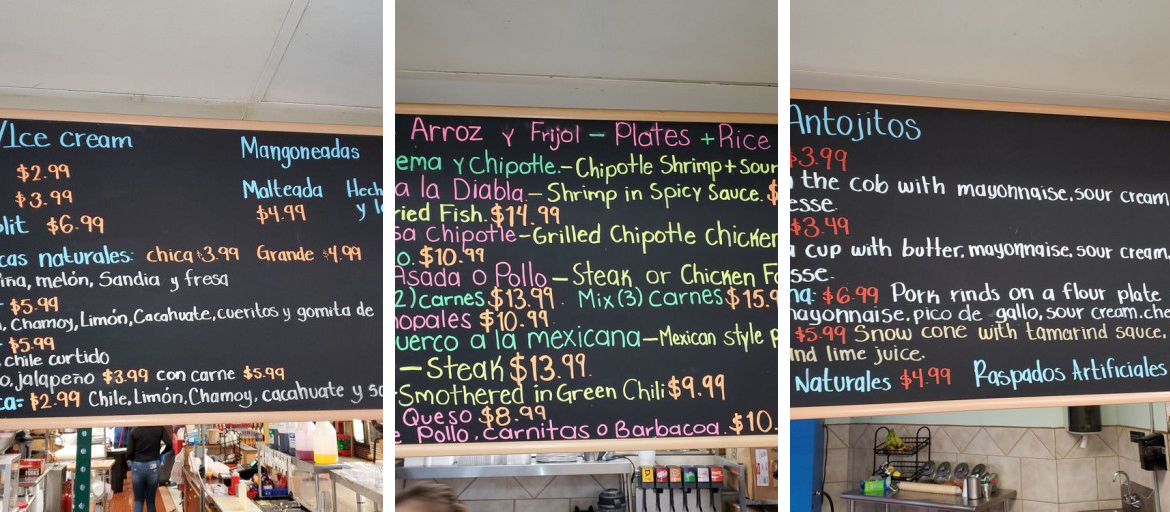 /Ice cream
Mangoneadas
$2.99
$3.99
Malteada Hech
$4.99 y le
lit $6.99
cas naturales: chica $3.99 Grande $4.99
iña, melón, Sandia y fresa
$5.99
, Chamoy, Limón, Cacahuate, cueritos y gomita de
$5.99
chile curtido
o, jalapeño $3.99 con carne $5.99
ca: $2.99 Chile, Limón, Chamoy, cacahuate y sa
Arroz y Frijol - Plates + Rice
ema y Chipotle. - Chipotle Shrimp + Sour
a la Diabla - Shrimp in Spicy Sauce. $
ried Fish. $14.99
sa Chipotle - Grilled Chipotle Chicken
o. $10.99
Asada o Pollo - Steak or Chicken Fa
2) carnes $13.99. Mix (3) Carnes $15.9
nopales $10.99
uerco a la mexicana - Mexican style p
- Steak $13.99.
- Smothered in Green Chili $9.99
Queso $8.99
e Pollo, Carnitas o Barbacoa. $10.
Antojitos
$3.99
the cob with mayonnaise, sour cream
esse.
$3.49
a cup with butter, mayonnaise, sour cream,
sse.
na: $6.99 Pork rinds on a flour plate
mayonnaise, pico de gallo, sour cream, che
$5.99 Snow cone with tamarind sauce,
nd lime juice.
Naturales $4.99 Raspados Artificiales